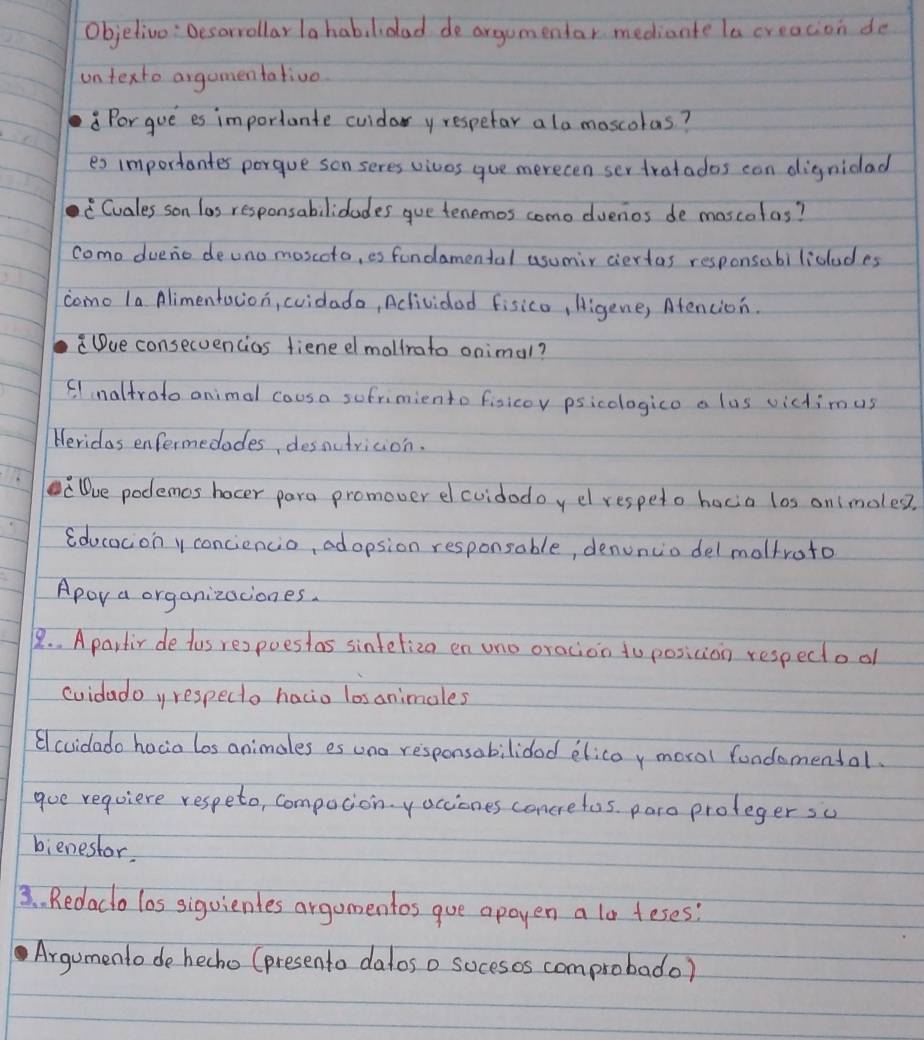 Objetivo: Desarrollar la habilidad de argumentar mediante la creación de
un texto argumentativo
• ¿Por qué es importante cuidar y respetar a la mascotas?
es importantes porque son seres vivos que merecen ser tratados con dignidad
• ¿Cuales son las responsabilidades que tenemos como dueños de mascotas?
como dueño de una mascota, es fundamental asumir ciertas responsabilidades
como la Alimentación, cuidado, Actividad fisica, Higene, Atencion.
• ¿Que consecuencias tiene el maltrato animal?
El naltrato animal causa sufrimiento fisico y psicologico a las victimas
Heridas enfermedades, desnutrición.
• ¿Que podemos hacer para promover el cuidado y el respeto hacia los animales?
Educación y conciencia, adopsion responsable, denuncia del maltrato
Apoy a organizaciones.
2.. A partir de tus respuestas sintetiza en una oración tu posición respecto al
cuidado y respecto hacia los animales
El cuidado hacia los animales es una responsabilidad ética y moral fundamental.
que requiere respeto, compación y acciones concretas. para proteger su
bienestar.
3.. Redacto los siguientes argumentos que apoyen a la teses:
• Argumento de hecho (presento datos o sucesos comprobado)